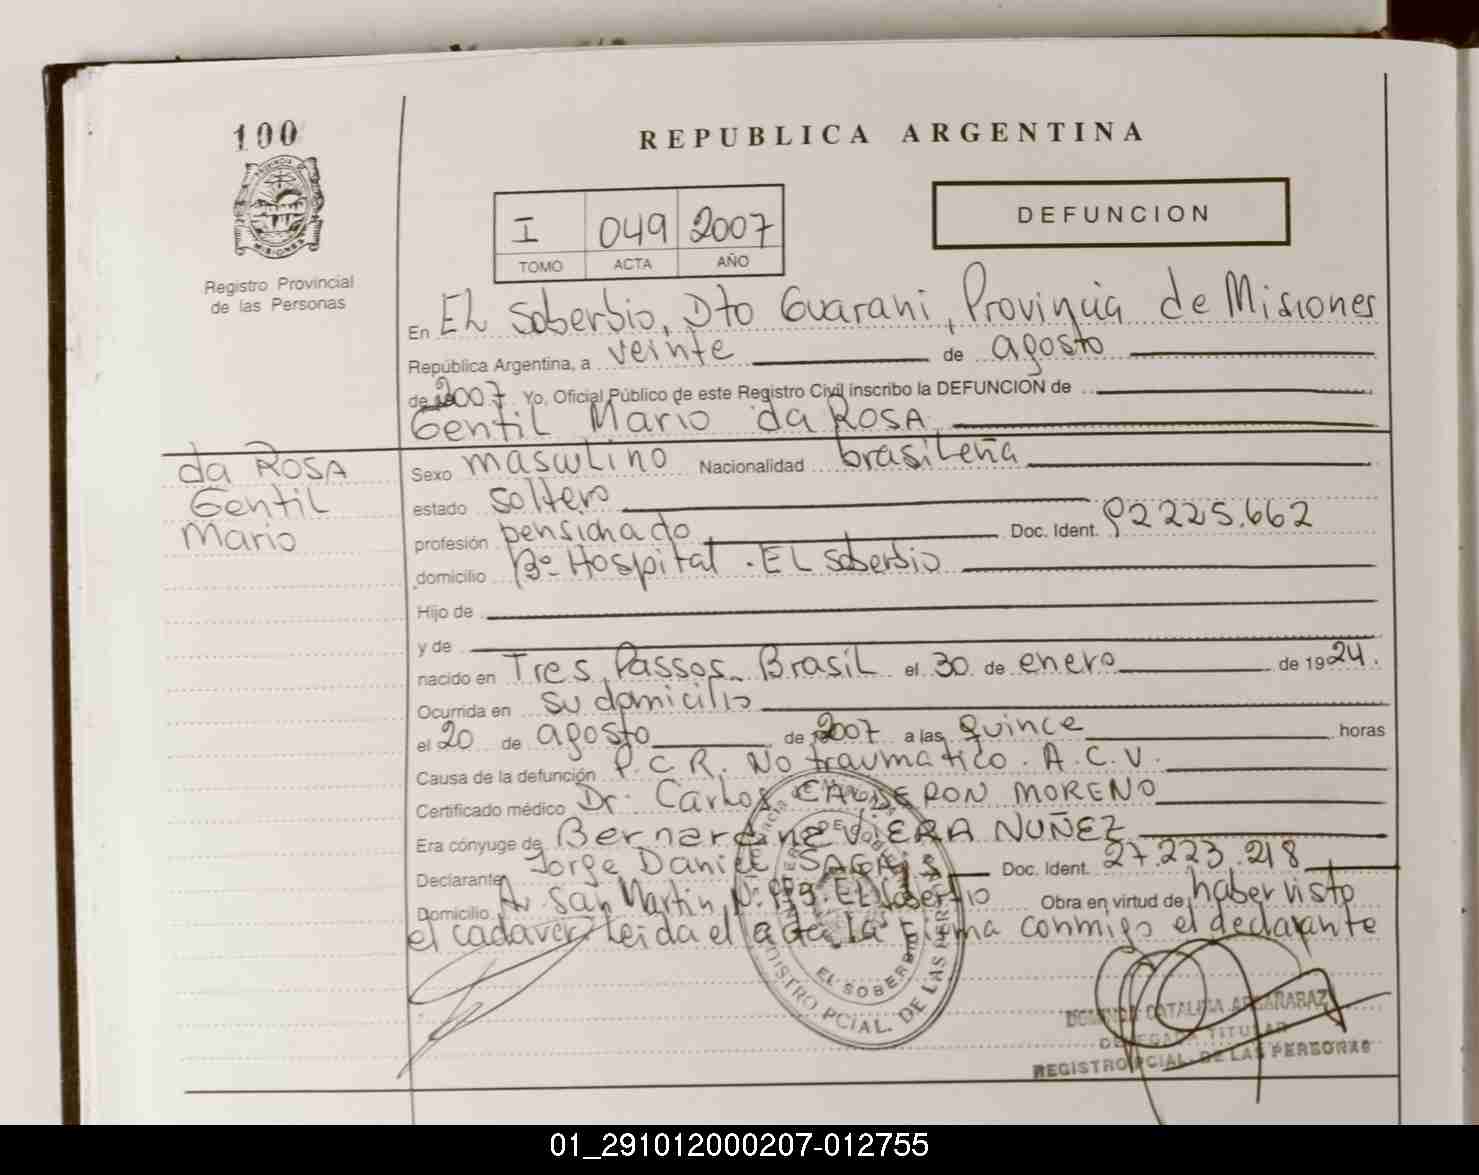 100
REPUBLICA ARGENTINA
PROVINCIA DE
MISIONES
Registro Provincial
de las Personas
I 049 2007
TOMO ACTA AÑO
DEFUNCION
En EL Soberbio, Dto Guarani, Provincia de Misiones
República Argentina, a veinte de agosto
de 2007 Yo, Oficial Público de este Registro Civil inscribo la DEFUNCION de
Gentil Mario da ROSA
da ROSA
Gentil
Mario
Sexo masculino Nacionalidad brasileña
estado soltero
profesión pensionado Doc. Ident. 92225.662
domicilio Bº Hospital - EL Soberbio
Hijo de
y de
nacido en Tres Passos - Brasil el 30 de enero de 1924.
Ocurrida en su domicilio
el 20 de agosto de 2007 a las quince horas
Causa de la defunción P.C.R. No traumatico. A.C.V.
Certificado médico Dr. Carlos CALDERON MORENO
Era cónyuge de VIERA NUÑEZ
Declarante Jorge Daniel Doc. Ident. 27.223.218
Domicilio Av San Martin Nº EL Soberbio Obra en virtud de haber visto
el cadaver, leida el acta la firma conmigo el declarante
EL SOBERBIO
REGISTRO PCIAL. DE LAS PER
CATALINA
DELEGADA TITULAR
REGISTRO PCIAL. DE LAS PERSONAS
01_291012000207-012755